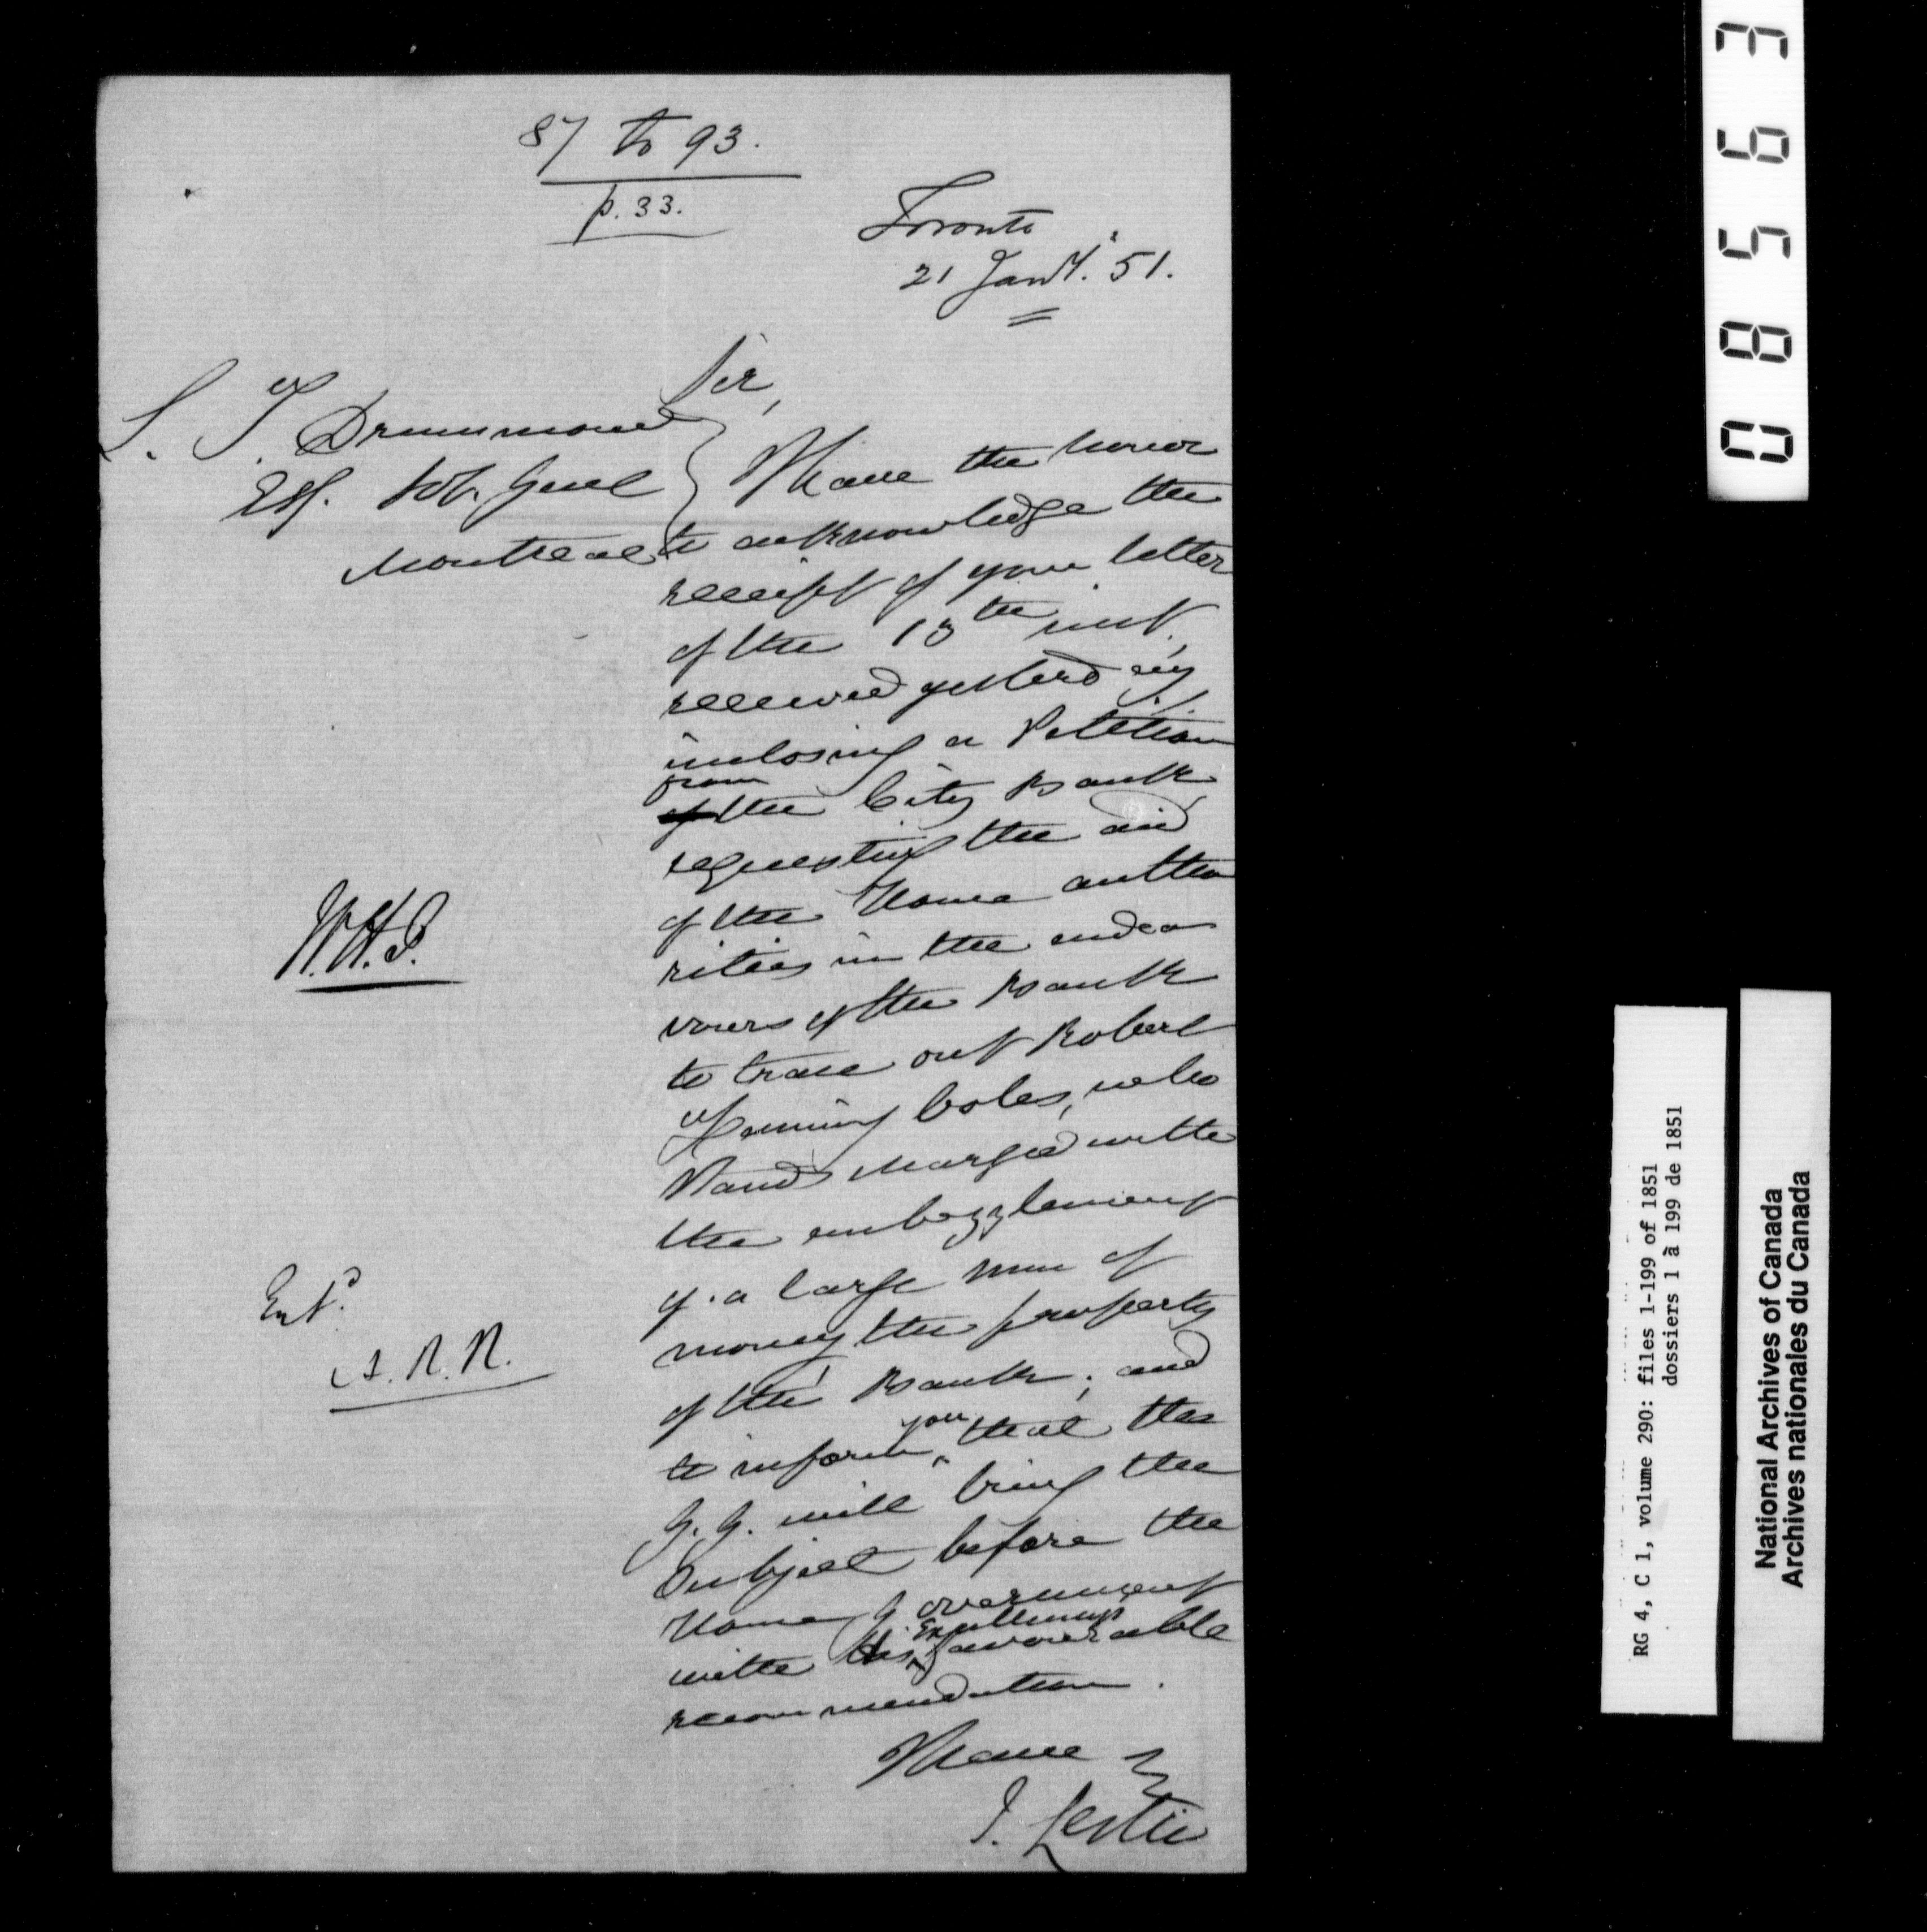 87 to 93.
p. 33.
Toronto
21 Jany. 51.
Sir,
L. T. Drummond
Esq. Sol. Genl
Montreal
I have the honor
to acknowledge the
receipt of your letter
of the 13th inst,
received yesterday
inclosing a Petition
from
of the City Bank
requesting the aid
of the Home autho
rities in the endea
vours of the Bank
to trace out Robert
Coles, who
stands charged with
the embezzlement
of a large sum of
money the property
of the Bank; and
to inform you that the
G. G. will bring the
Subject before the
Home Government
with His Excellency's favourable
recommendation.
I have
J. Leslie
Entd.
A. R. R.
08563
RG 4, C 1, volume 290: files 1-199 of 1851
dossiers 1 à 199 de 1851
National Archives of Canada
Archives nationales du Canada